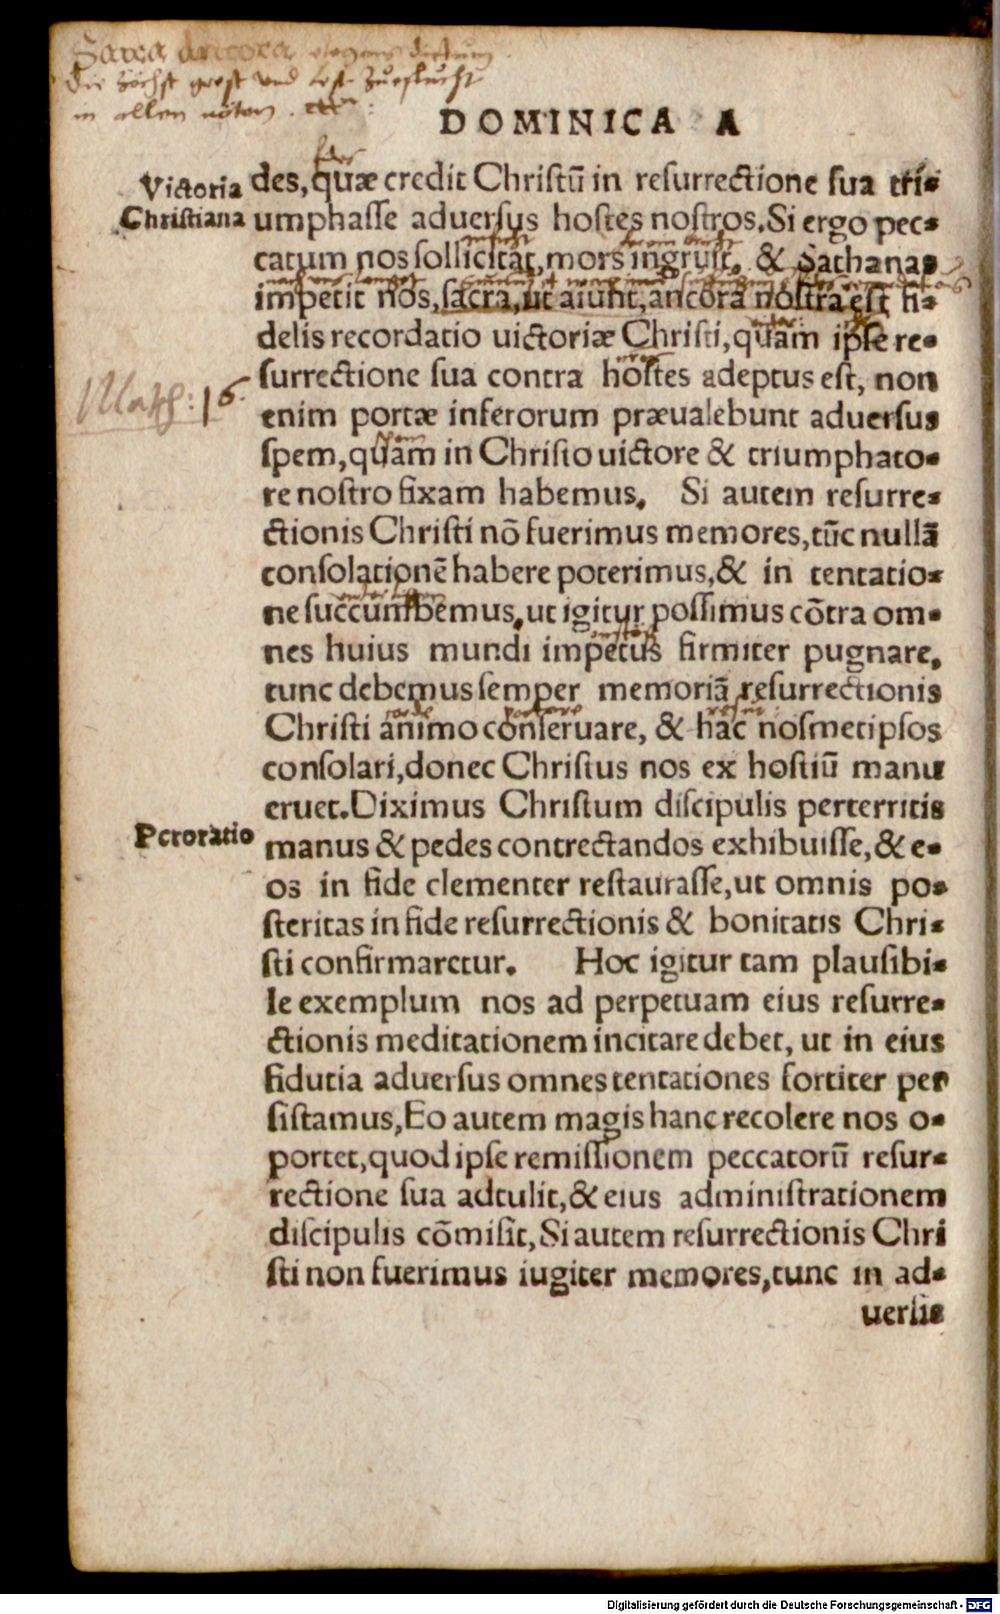 Sacra Ancora elegans dictum
die höchst grost und lest Zueflucht
in allen nöten. etc.
DOMINICA A
fides
Victoria
Christiana
des, quæ credit Christū in resurrectione sua tri-
umphasse aduersus hostes nostros. Si ergo pec-
catum nos sollicitat, mors ingruit, & Sathanas
impetit nos, sacra, ut aiunt, ancora nostra est fi-
delis recordatio uictoriæ Christi, quam ipse re-
surrectione sua contra hostes adeptus est, non
Math: 16.
enim portæ inferorum præualebunt aduersus
spem, quam in Christo uictore & triumphato-
re nostro fixam habemus. Si autem resurre-
ctionis Christi nō fuerimus memores, tūc nullā
consolationē habere poterimus, & in tentatio-
ne succumbemus, ut igitur possimus cōtra om-
nes huius mundi impetus firmiter pugnare,
tunc debemus semper memoriā resurrectionis
corde
Christi animo conseruare, & hac nosmetipsos
consolari, donec Christus nos ex hostiū manu
eruet. Diximus Christum discipulis perterritis
Peroratio
manus & pedes contrectandos exhibuisse, & e-
os in fide clementer restaurasse, ut omnis po-
steritas in fide resurrectionis & bonitatis Chri-
sti confirmaretur. Hoc igitur tam plausibi-
le exemplum nos ad perpetuam eius resurre-
ctionis meditationem incitare debet, ut in eius
fidutia aduersus omnes tentationes fortiter per
sistamus, Eo autem magis hanc recolere nos o-
portet, quod ipse remissionem peccatorū resur-
rectione sua adtulit, & eius administrationem
discipulis cōmisit, Si autem resurrectionis Chri
sti non fuerimus iugiter memores, tunc in ad-
uersis
Digitalisierung gefördert durch die Deutsche Forschungsgemeinschaft - DFG